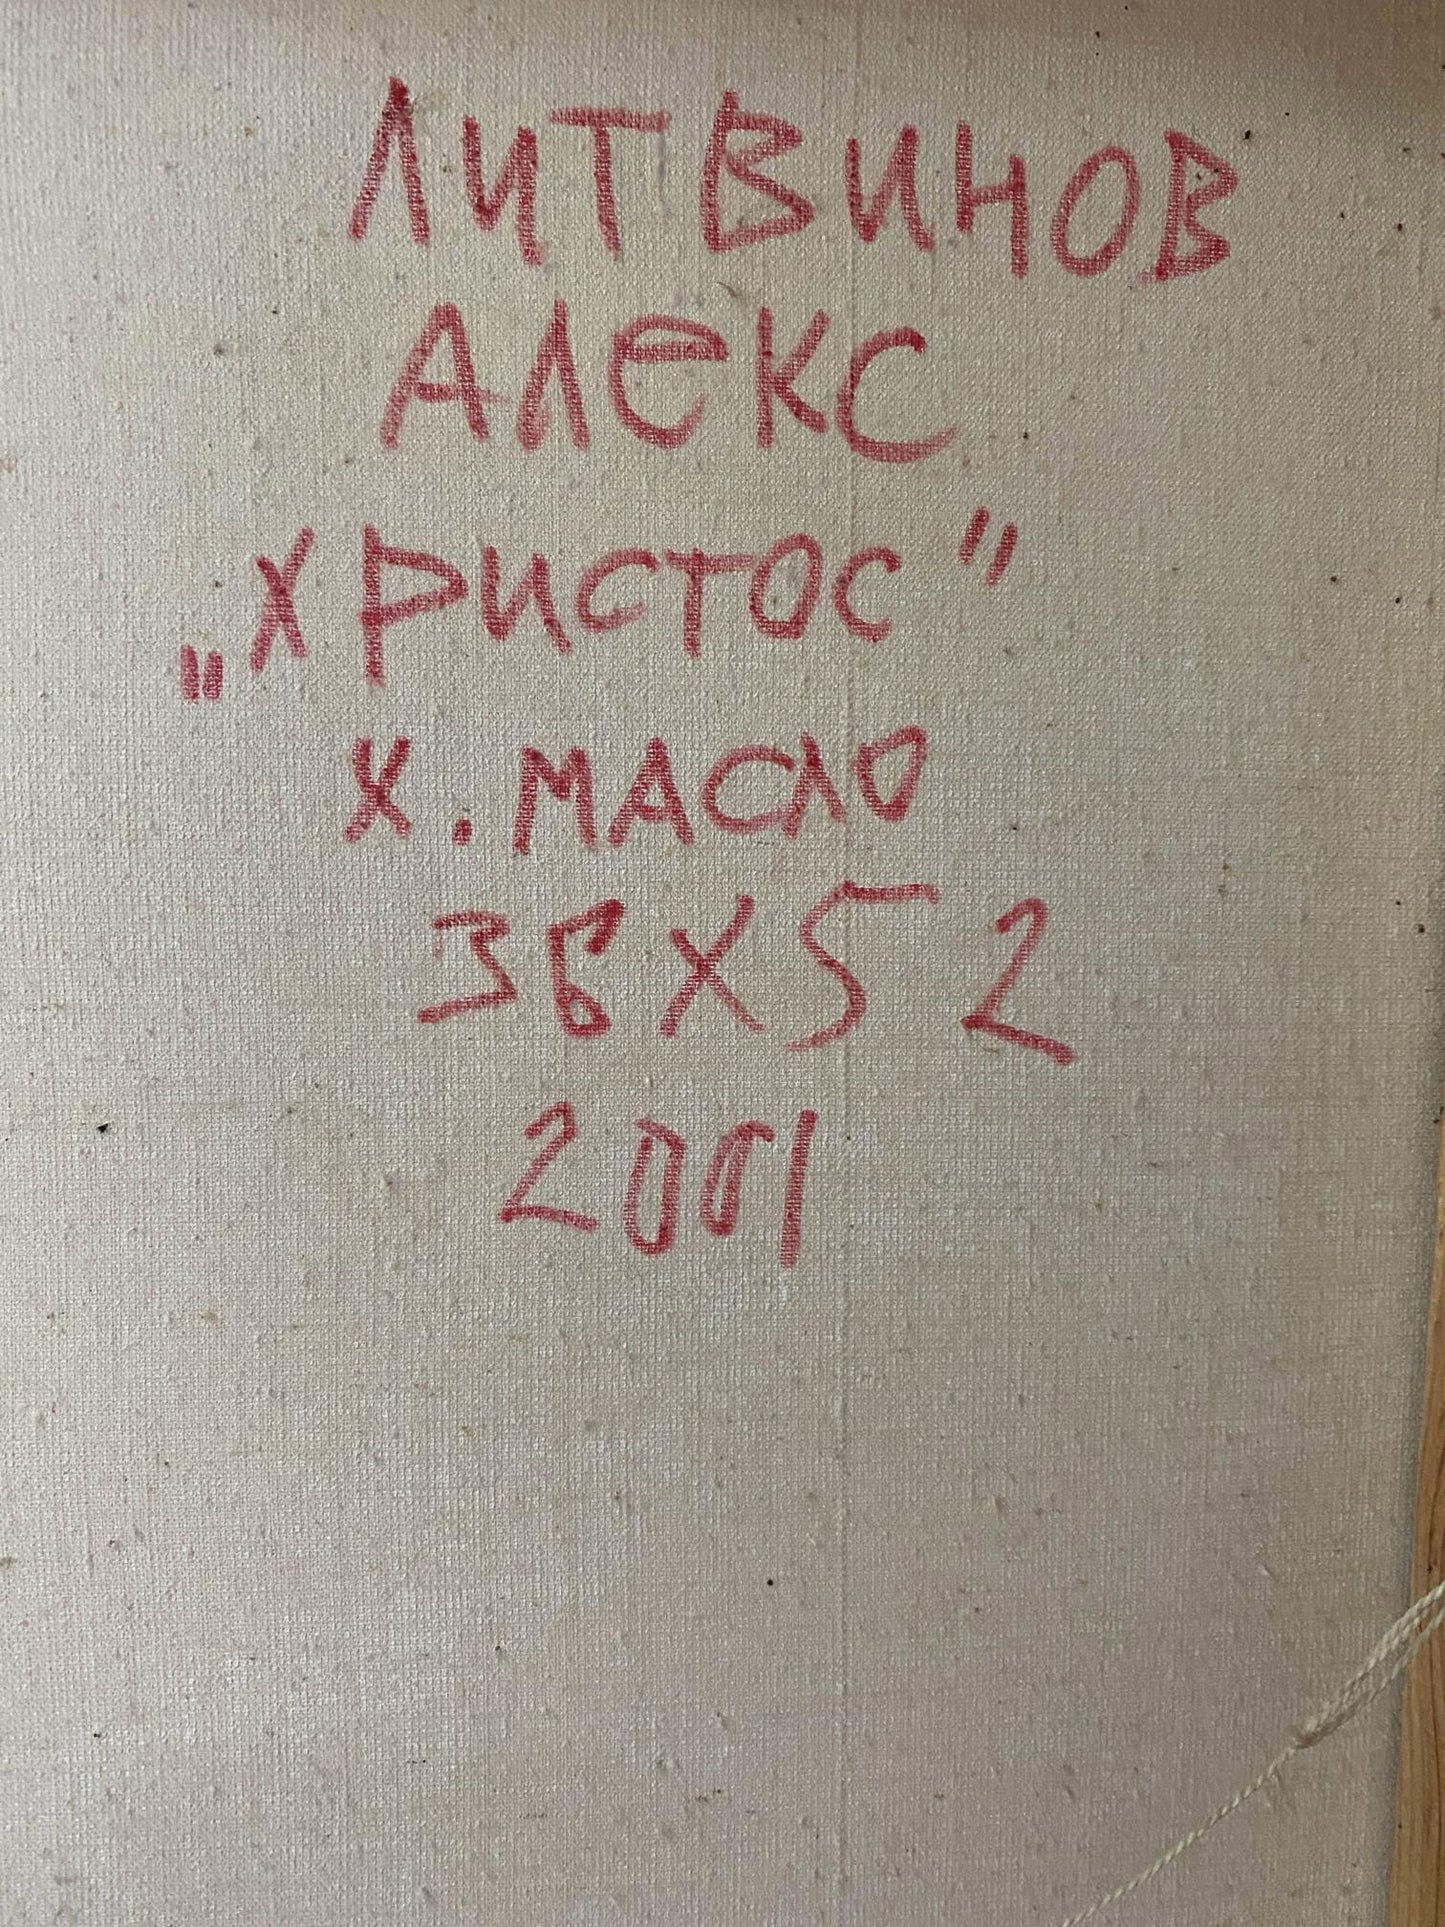 ЛИТВИНОВ
АЛЕКС
„ХРИСТОС"
Х. МАСЛО
36X52
2001